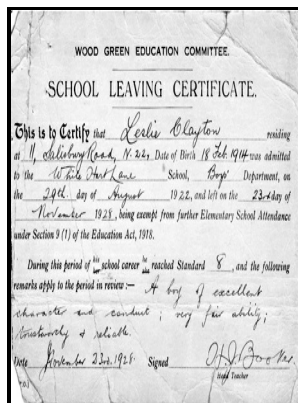 WOOD GREEN EDUCATION COMMITTEE.
SCHOOL LEAVING CERTIFICATE.
This is to Certify that Leslie Clayton residing
at 11, Salisbury Road, N.22, Date of Birth 18 Feb. 1914 was admitted
to the White Hart Lane School, Boys' Department, on
the 29th. day of August 1922, and left on the 23rd day of
November 1928, being exempt from further Elementary School Attendance
under Section 9 (1) of the Education Act, 1918.
During this period of his school career he reached Standard 8, and the following
remarks apply to the period in review:— A boy of excellent
character and conduct; very fair ability;
trustworthy & reliable.
Date November 23rd. 1928. Signed
Head Teacher